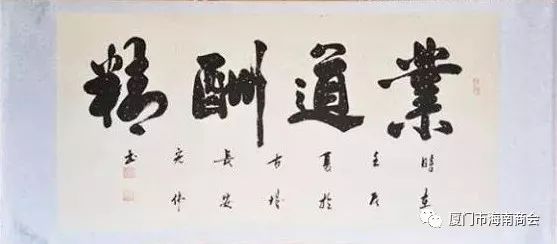 業道酬精
時在
壬辰
夏於
古城
長安
伟
书
厦门市海南商会